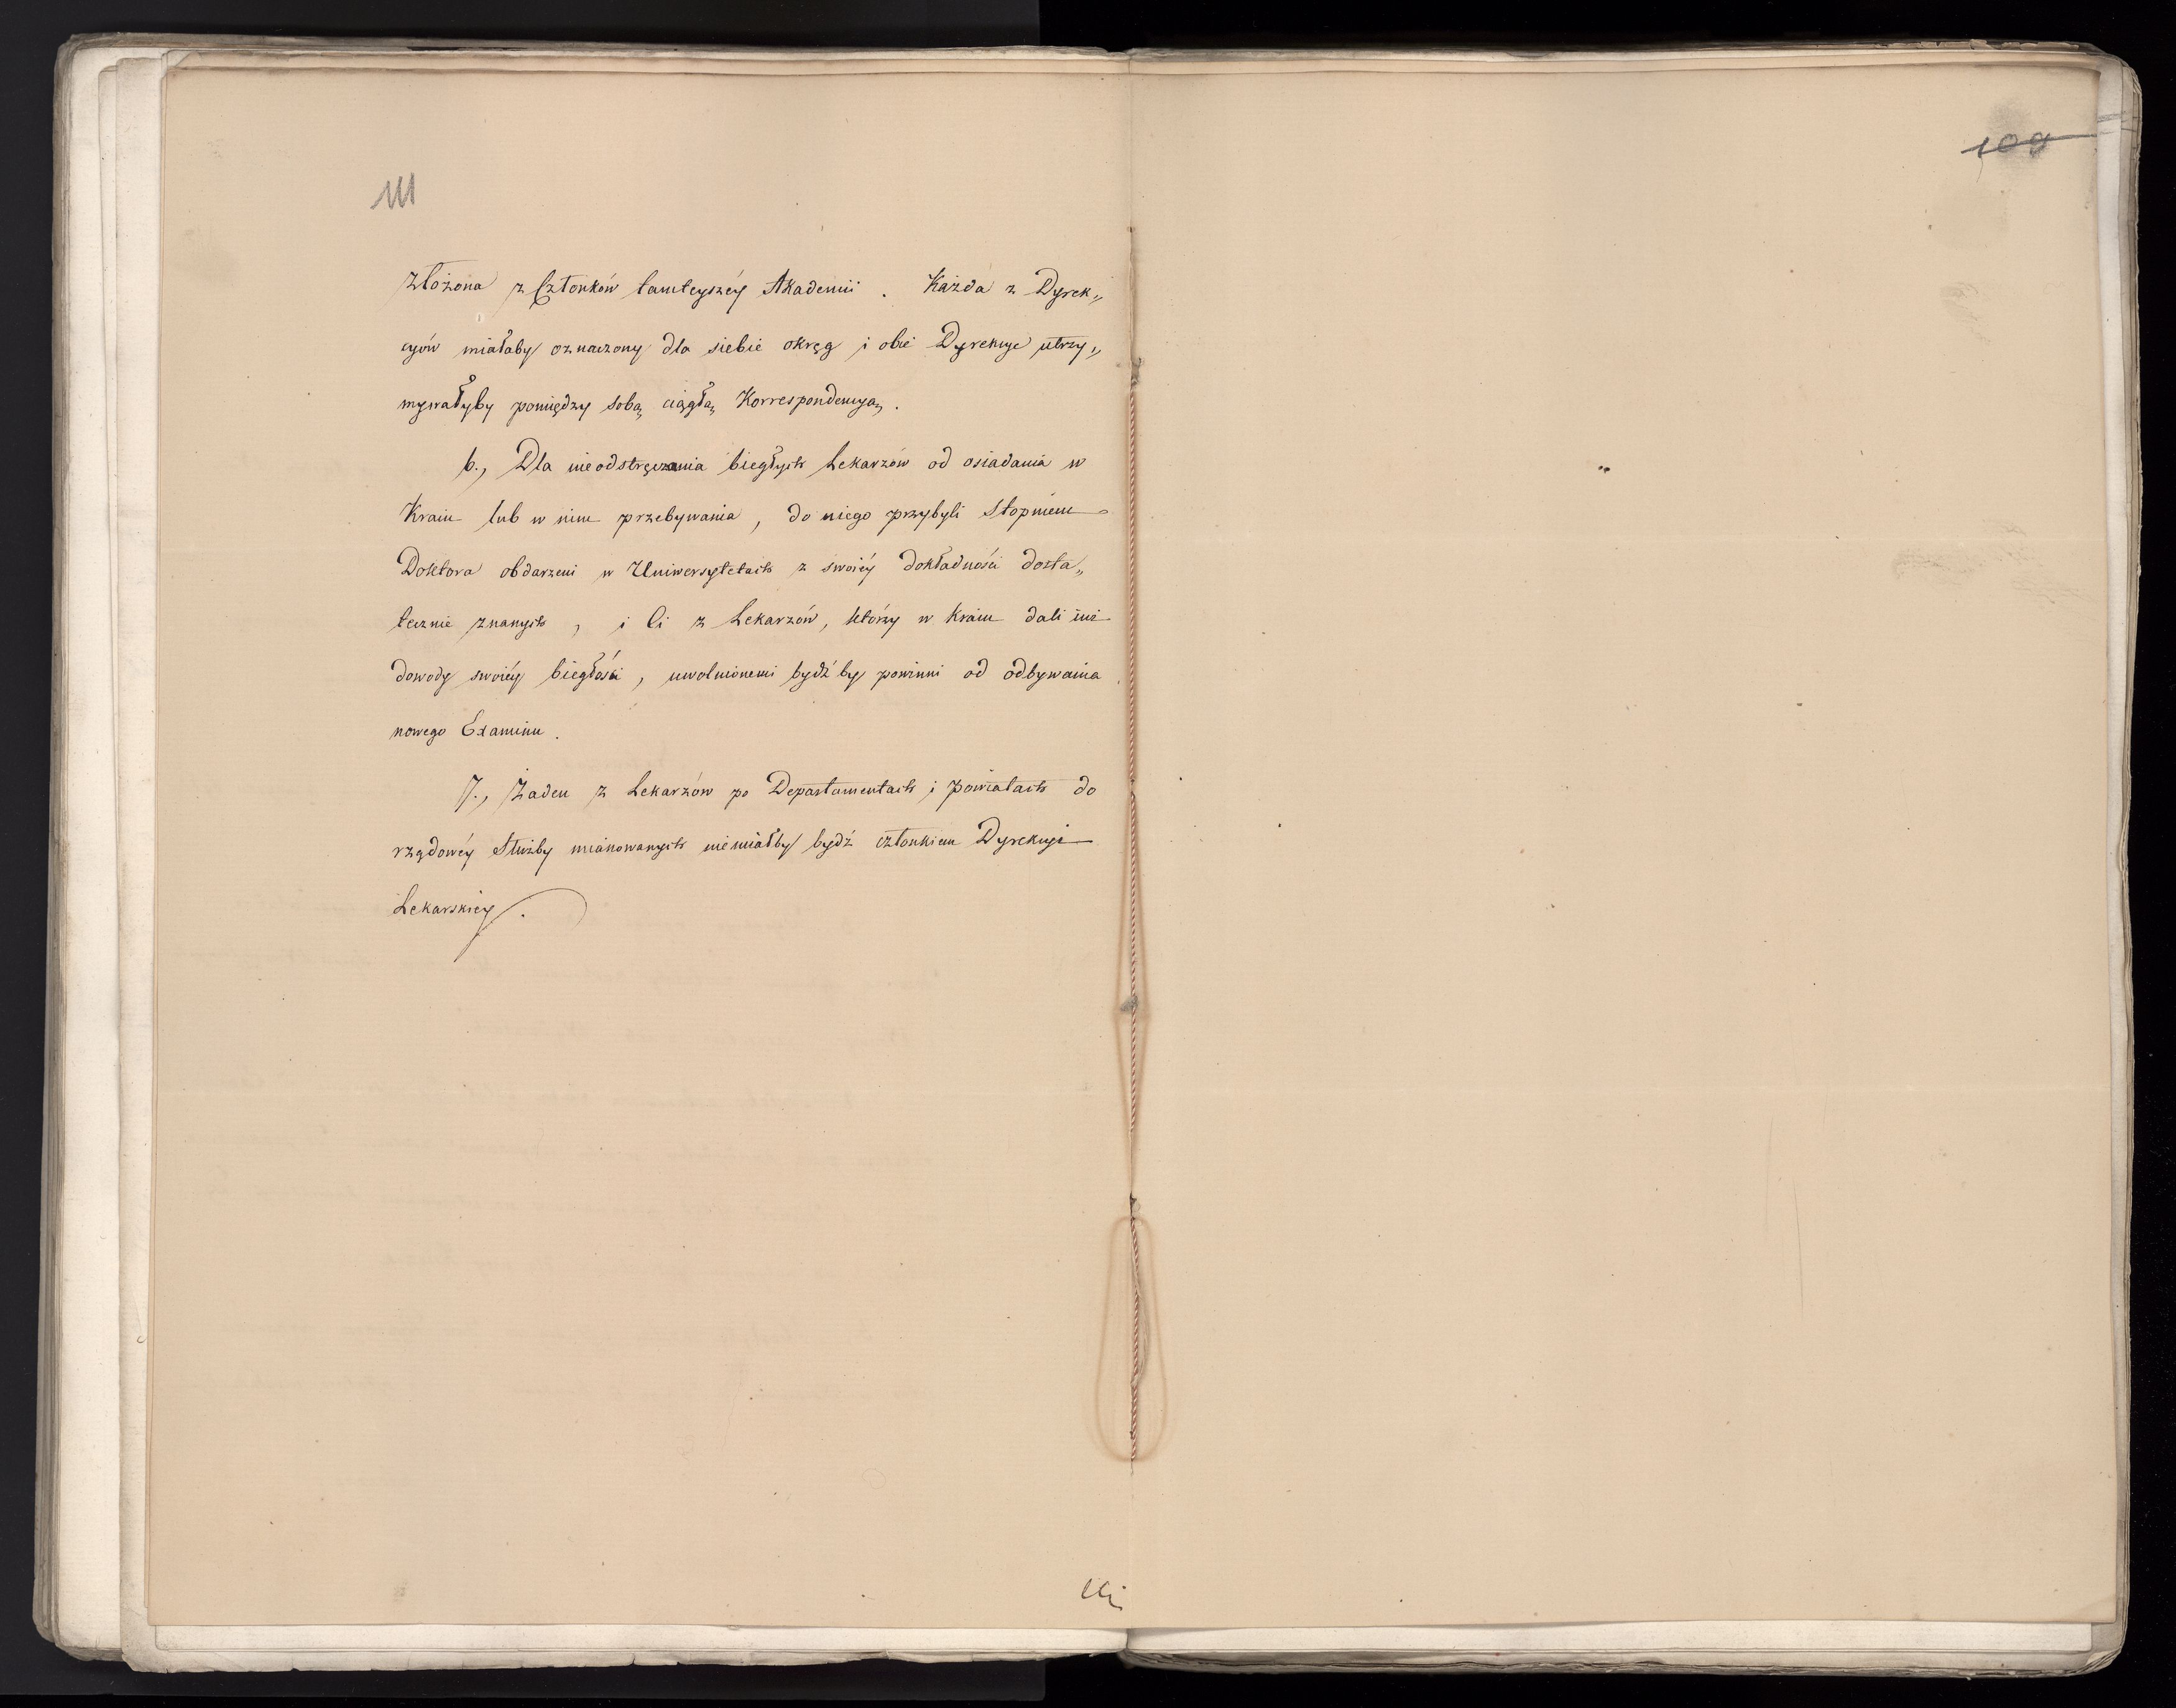 111
złożona z Członków tamteyszéy Akademii. Każda z Dyrek„
cyów miałaby oznaczony dla siebie okręg i obie Dyrekcye utrzy„
mywałyby pomiędzy sobą ciągłą Korrespondencyą.
6., Dla nieodstręczania biegłych Lekarzów od osiadania w
Kraiu lub w nim przebywania, do niego przybyli Stopniem
Doktora obdarzeni w Uniwersytetach z swoiéy dokładności dosta„
tecznie znanych, i Ci z Lekarzów, którzy w Kraiu dali iuż
dowody swoiéy biegłości, uwolnionemi bydź by powinni od odbywania
nowego Examinu.
7., Żaden z Lekarzów po Departamentach i powiatach do
rządowéy Służby mianowanych niemiałby bydź członkiem Dyrekcyi
Lekarskiéy.
109